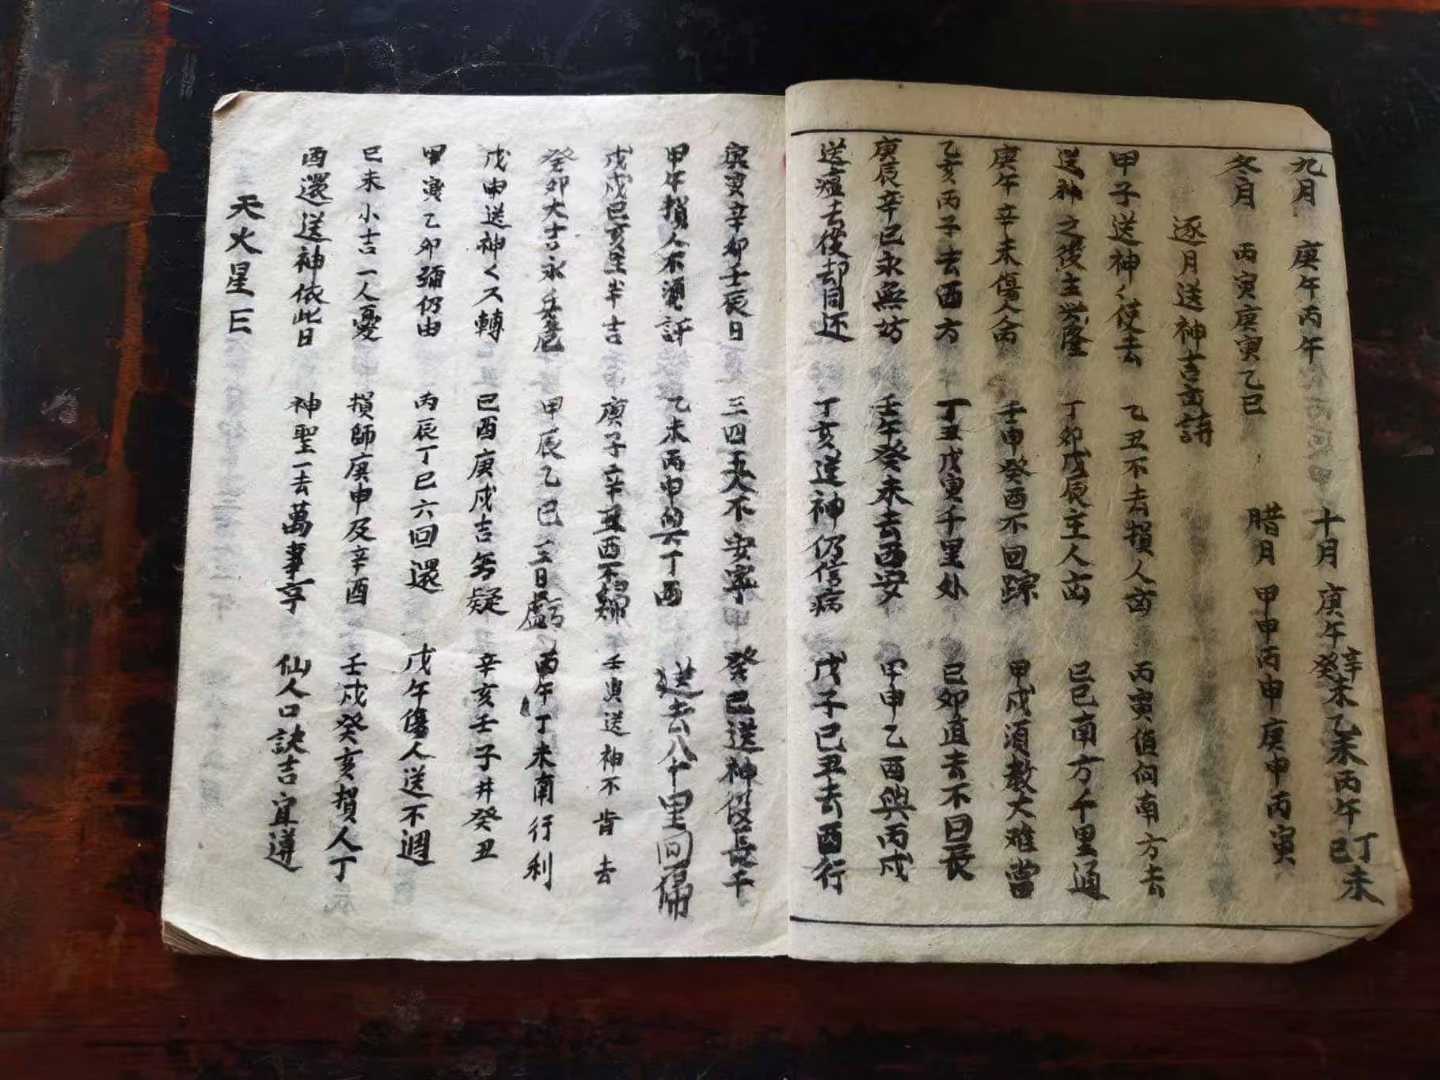 九月 庚午丙午 十月 庚午辛未癸未乙未丙午丁未
冬月 丙寅庚寅乙巳 腊月 甲申丙申庚申丙寅
逐月送神吉凶詩
甲子送神々使去 乙丑不去損人凶 丙寅值向南方去
送神之後主兴隆 丁卯戊辰主人凶 己巳南方千里通
庚午辛未傷人凶 壬申癸酉不回踪 甲戌須教大难當
乙亥丙子去西方 丁丑戊寅千里外 己卯直去不回長
庚辰辛巳永無妨 壬午癸未去西安 甲申乙酉與丙戌
送瘟去後却回还 丁亥送神仍信病 戊子己丑去西行
庚寅辛卯壬辰日 三四五人不安寧 癸巳送神後長千
甲午損人不須許 乙未丙申與丁酉 送去八千里回歸
戊戌己亥是半吉 庚子辛丑酉不歸 壬寅送神不肯去
癸卯大吉永無危 甲辰乙巳三日 丙午丁未南行利
戊申送神々又轉 己酉庚戌吉無疑 辛亥壬子并癸丑
甲寅乙卯弥仍由 丙辰丁巳六回還 戊午傷人送不週
己未小吉一人憂 損師庚申及辛酉 壬戌癸亥損人丁
酉還送神依此日 神聖一去萬事亨 仙人口訣吉宜遵
天火星日